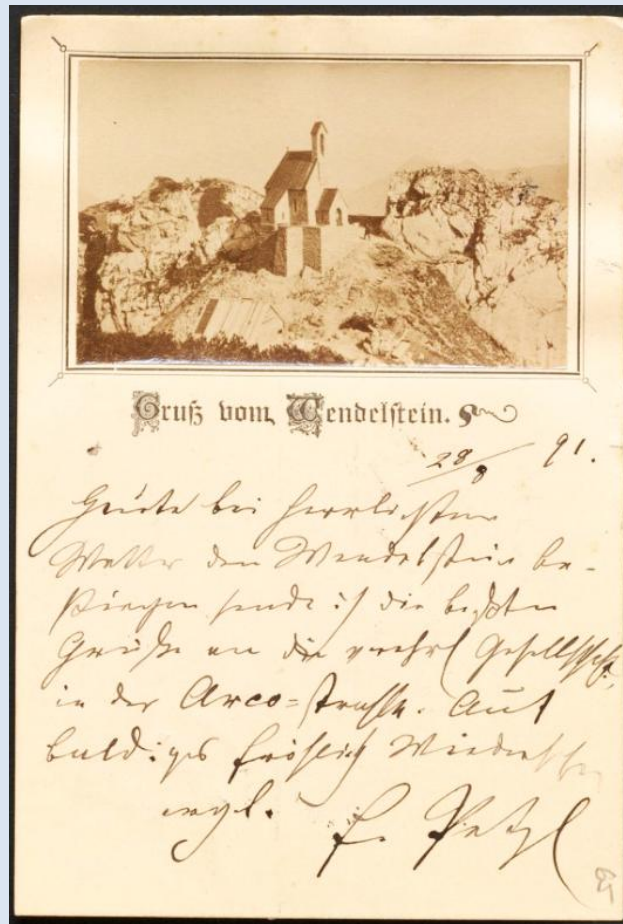 Gruß vom Wendelstein.
28/8 91.
Heute bei herrlichstem
Wetter den Wendelstein be-
stiegen sende ich die besten
Grüße an die verehrl Gesellschaft
in der Arco=strasse. Auf
baldiges fröhlich Wiedersehen
F. Petzl